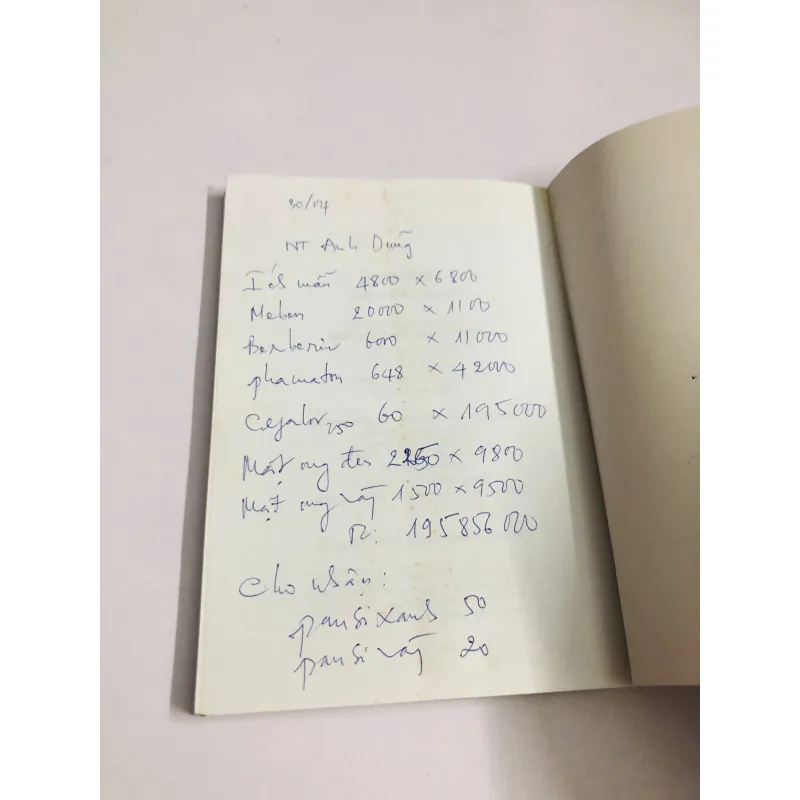 30/04
NT Anh Dũng
Ích mẫu 4800 x 6800
Meben 20000 x 1100
Berberin 6000 x 11000
phamaton 648 x 42000
Cefalor 250 60 x 195000
Mật ong đen 2250 x 9800
Mật ong vàng 1500 x 9500
195856000
Cho nhận:
pansi xanh 50
pansi vàng 20